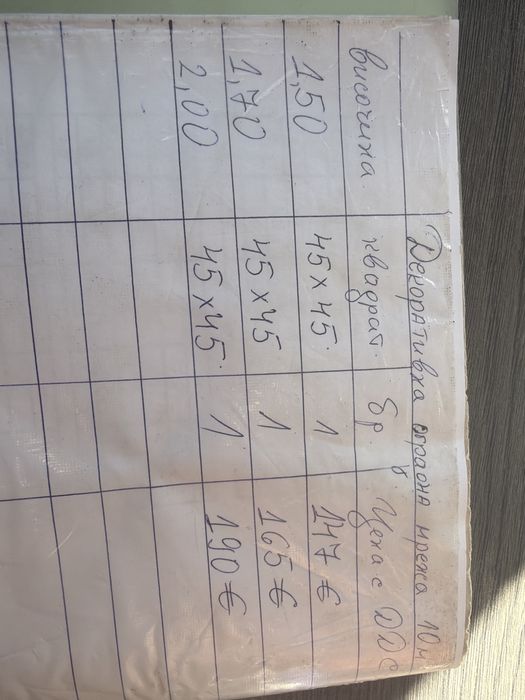 Декоративна оградна мрежа 10м
височина квадрат бр. Цена с ДДС
1,50 45x45 1 147 €
1,70 45x45 1 165 €
2,00 45x45 1 190 €